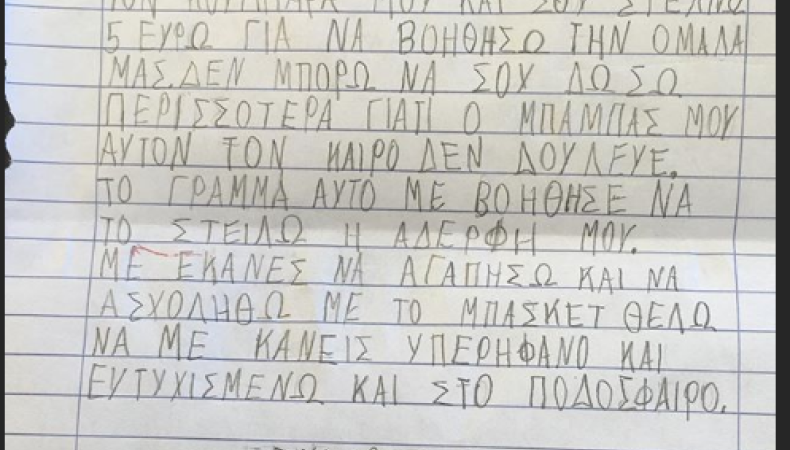 ΤΟΝ ΚΟΥΜΠΑΡΑ ΜΟΥ ΚΑΙ ΣΟΥ ΣΤΕΛΝΩ
5 ΕΥΡΩ ΓΙΑ ΝΑ ΒΟΗΘΗΣΩ ΤΗΝ ΟΜΑΔΑ
ΜΑΣ. ΔΕΝ ΜΠΟΡΩ ΝΑ ΣΟΥ ΔΩΣΩ
ΠΕΡΙΣΣΟΤΕΡΑ ΓΙΑΤΙ Ο ΜΠΑΜΠΑΣ ΜΟΥ
ΑΥΤΟΝ ΤΟΝ ΚΑΙΡΟ ΔΕΝ ΔΟΥΛΕΥΕ.
ΤΟ ΓΡΑΜΜΑ ΑΥΤΟ ΜΕ ΒΟΗΘΗΣΕ ΝΑ
ΤΟ ΣΤΕΙΛΩ Η ΑΔΕΡΦΗ ΜΟΥ.
ΜΕ ΕΚΑΝΕΣ ΝΑ ΑΓΑΠΗΣΩ ΚΑΙ ΝΑ
ΑΣΧΟΛΗΘΩ ΜΕ ΤΟ ΜΠΑΣΚΕΤ ΘΕΛΩ
ΝΑ ΜΕ ΚΑΝΕΙΣ ΥΠΕΡΗΦΑΝΟ ΚΑΙ
ΕΥΤΥΧΙΣΜΕΝΩ ΚΑΙ ΣΤΟ ΠΟΔΟΣΦΑΙΡΟ.